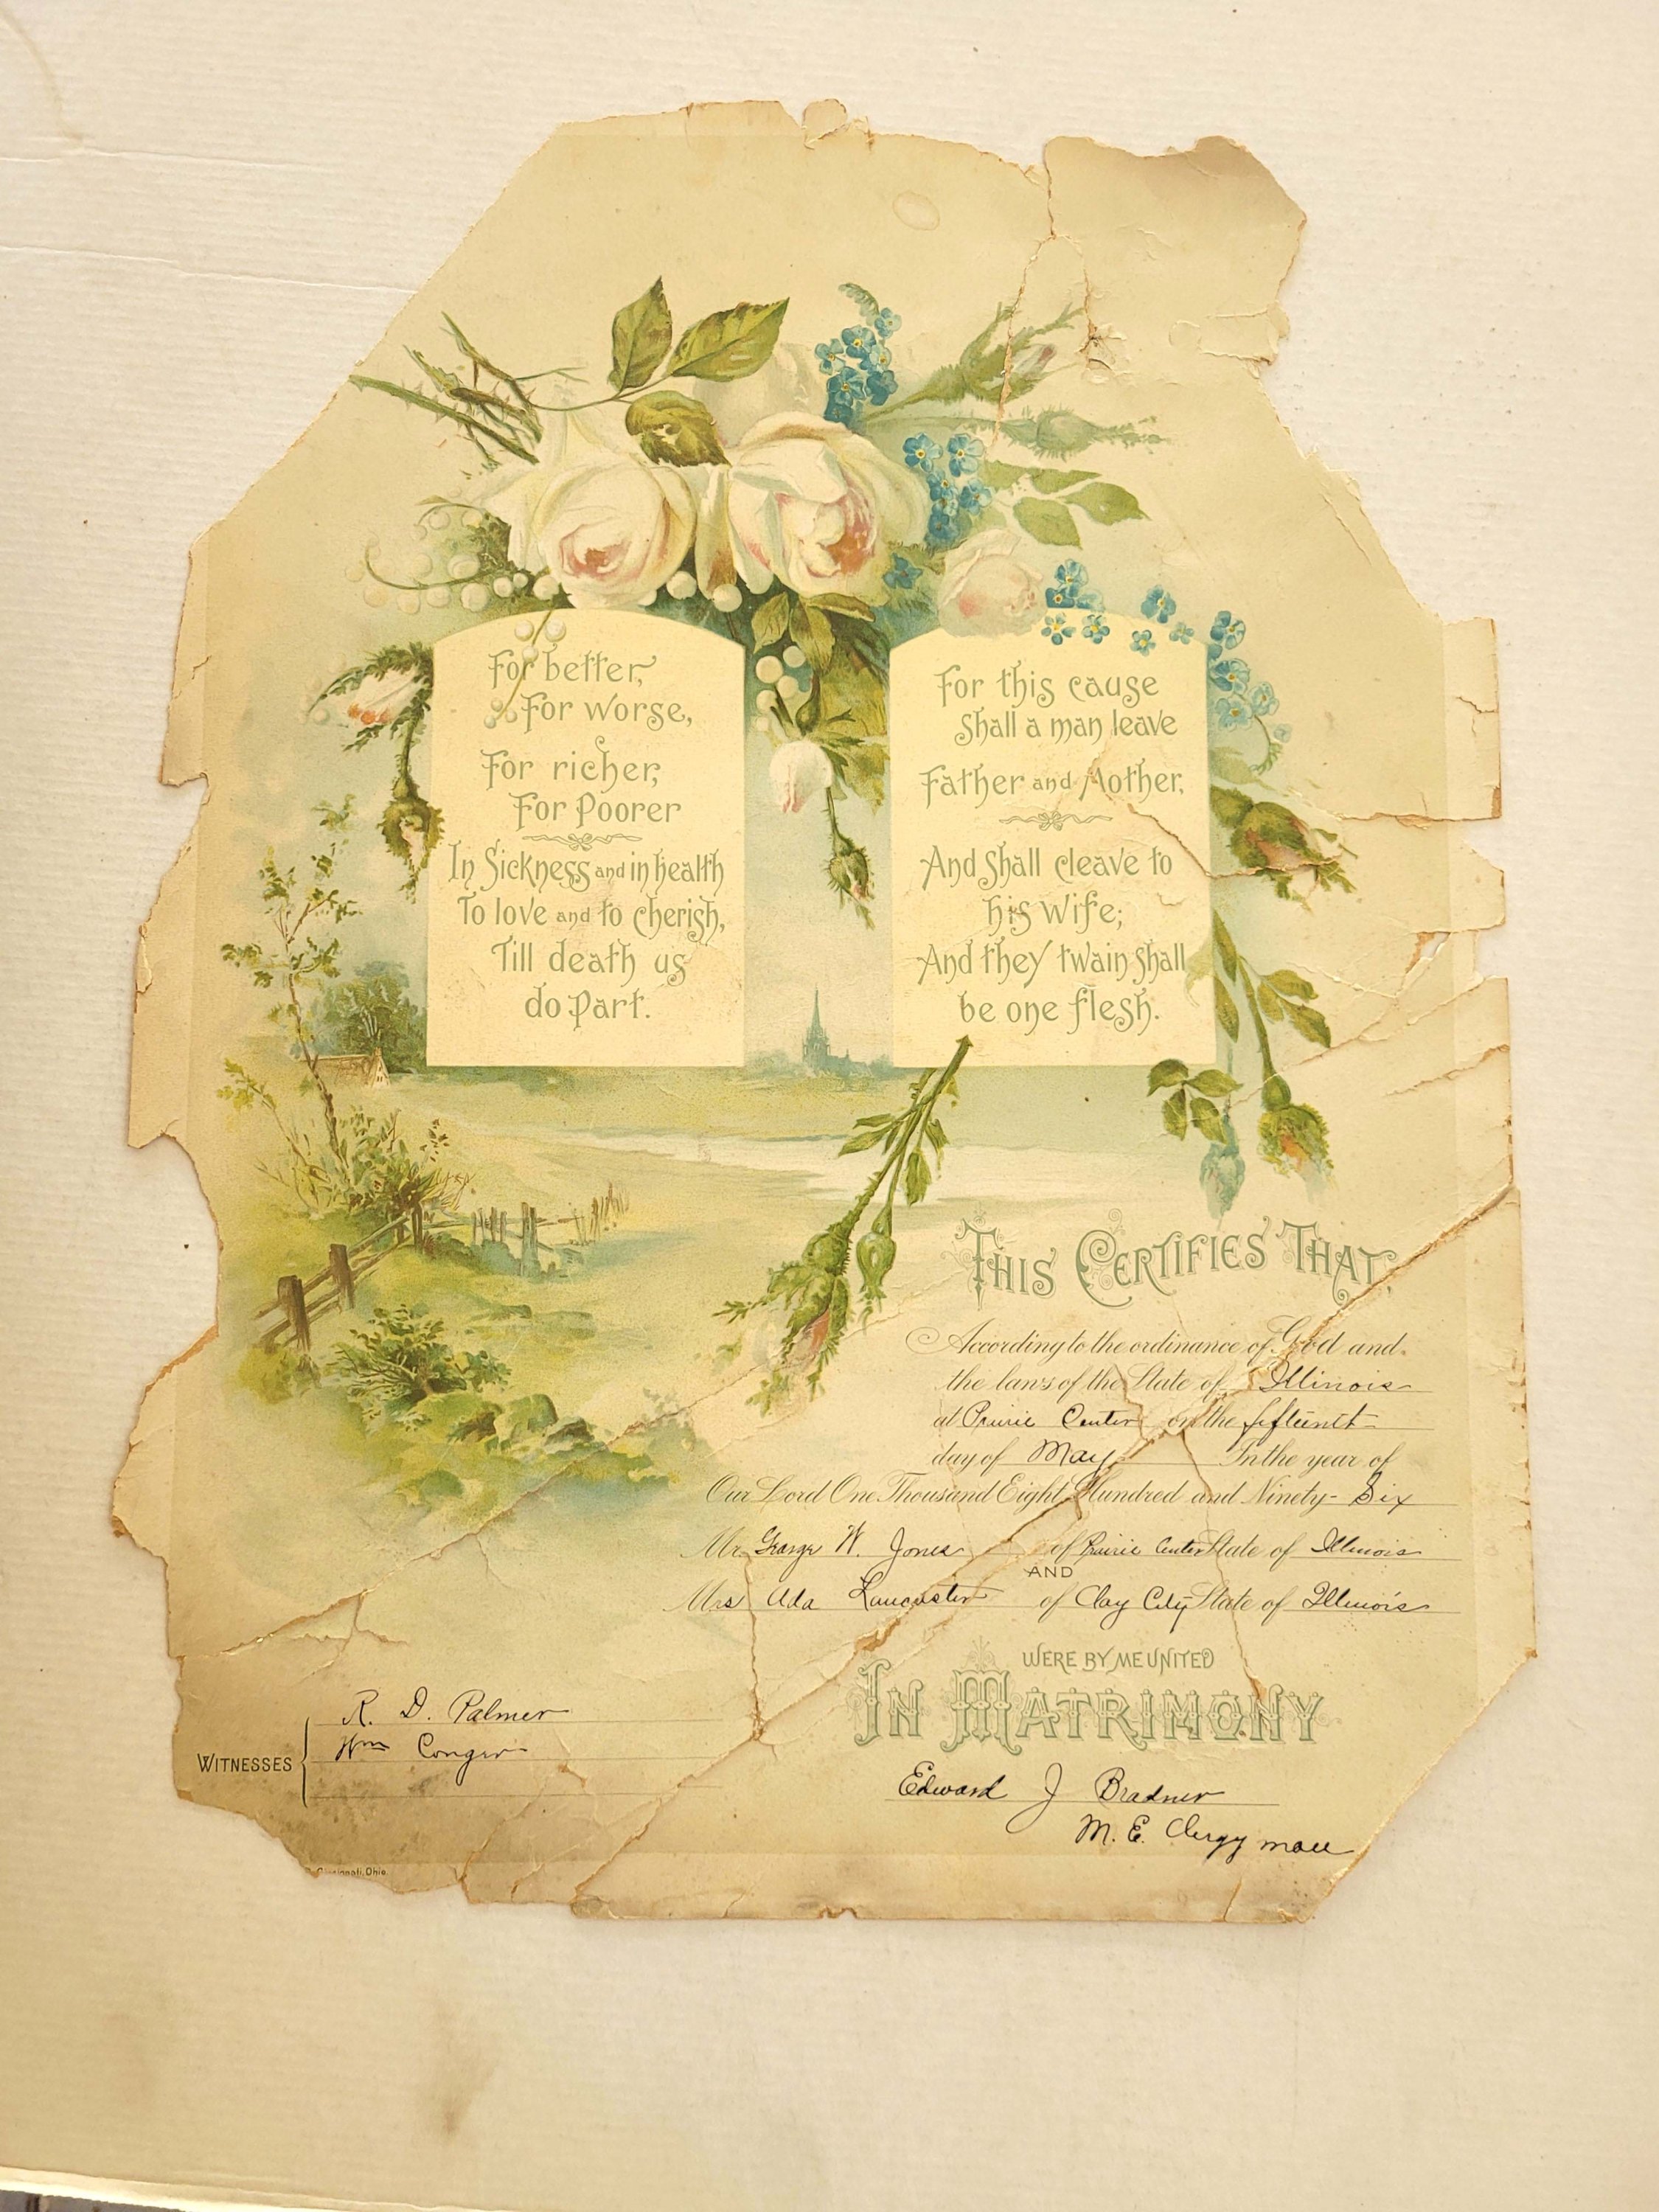 For better,
For worse,
For richer,
For Poorer
In Sickness and in health
To love and to cherish,
Till death us
do Part.
For this cause
Shall a man leave
Father and Mother,
And Shall cleave to
his Wife;
And they twain Shall
be one flesh.
THIS CERTIFIES THAT,
According to the ordinance of God and
the laws of the State of Illinois
at Prairie Center on the fifteenth
day of May In the year of
Our Lord One Thousand Eight Hundred and Ninety- Six
Mr. George W. Jones of Prairie Center State of Illinois
AND
Mrs Ada Lancaster of Clay City State of Illinois
WERE BY ME UNITED
IN MATRIMONY
Edward J Bradner
M. E. Clergyman
WITNESSES
R. D. Palmer
Wm Conger
Cincinnati, Ohio